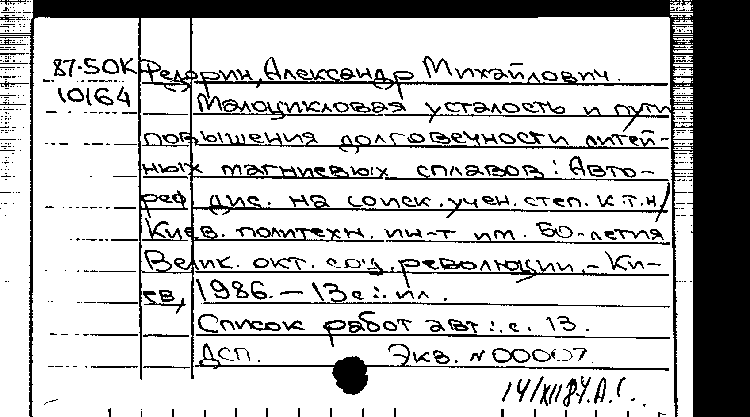 87-50К Федорин, Александр Михайлович.
10164 Малоцикловая усталость и пути
повышения долговечности литей-
ных магниевых сплавов : Авто-
реф. дис. на соиск. учен. степ. к.т.н/
Киев. политехн. ин-т им. 50-летия
Велик. окт. соц. революции. - Ки-
ев, 1986. - 13 с. : ил.
Список работ авт.: с. 13.
ДСП. Экз. N 00007